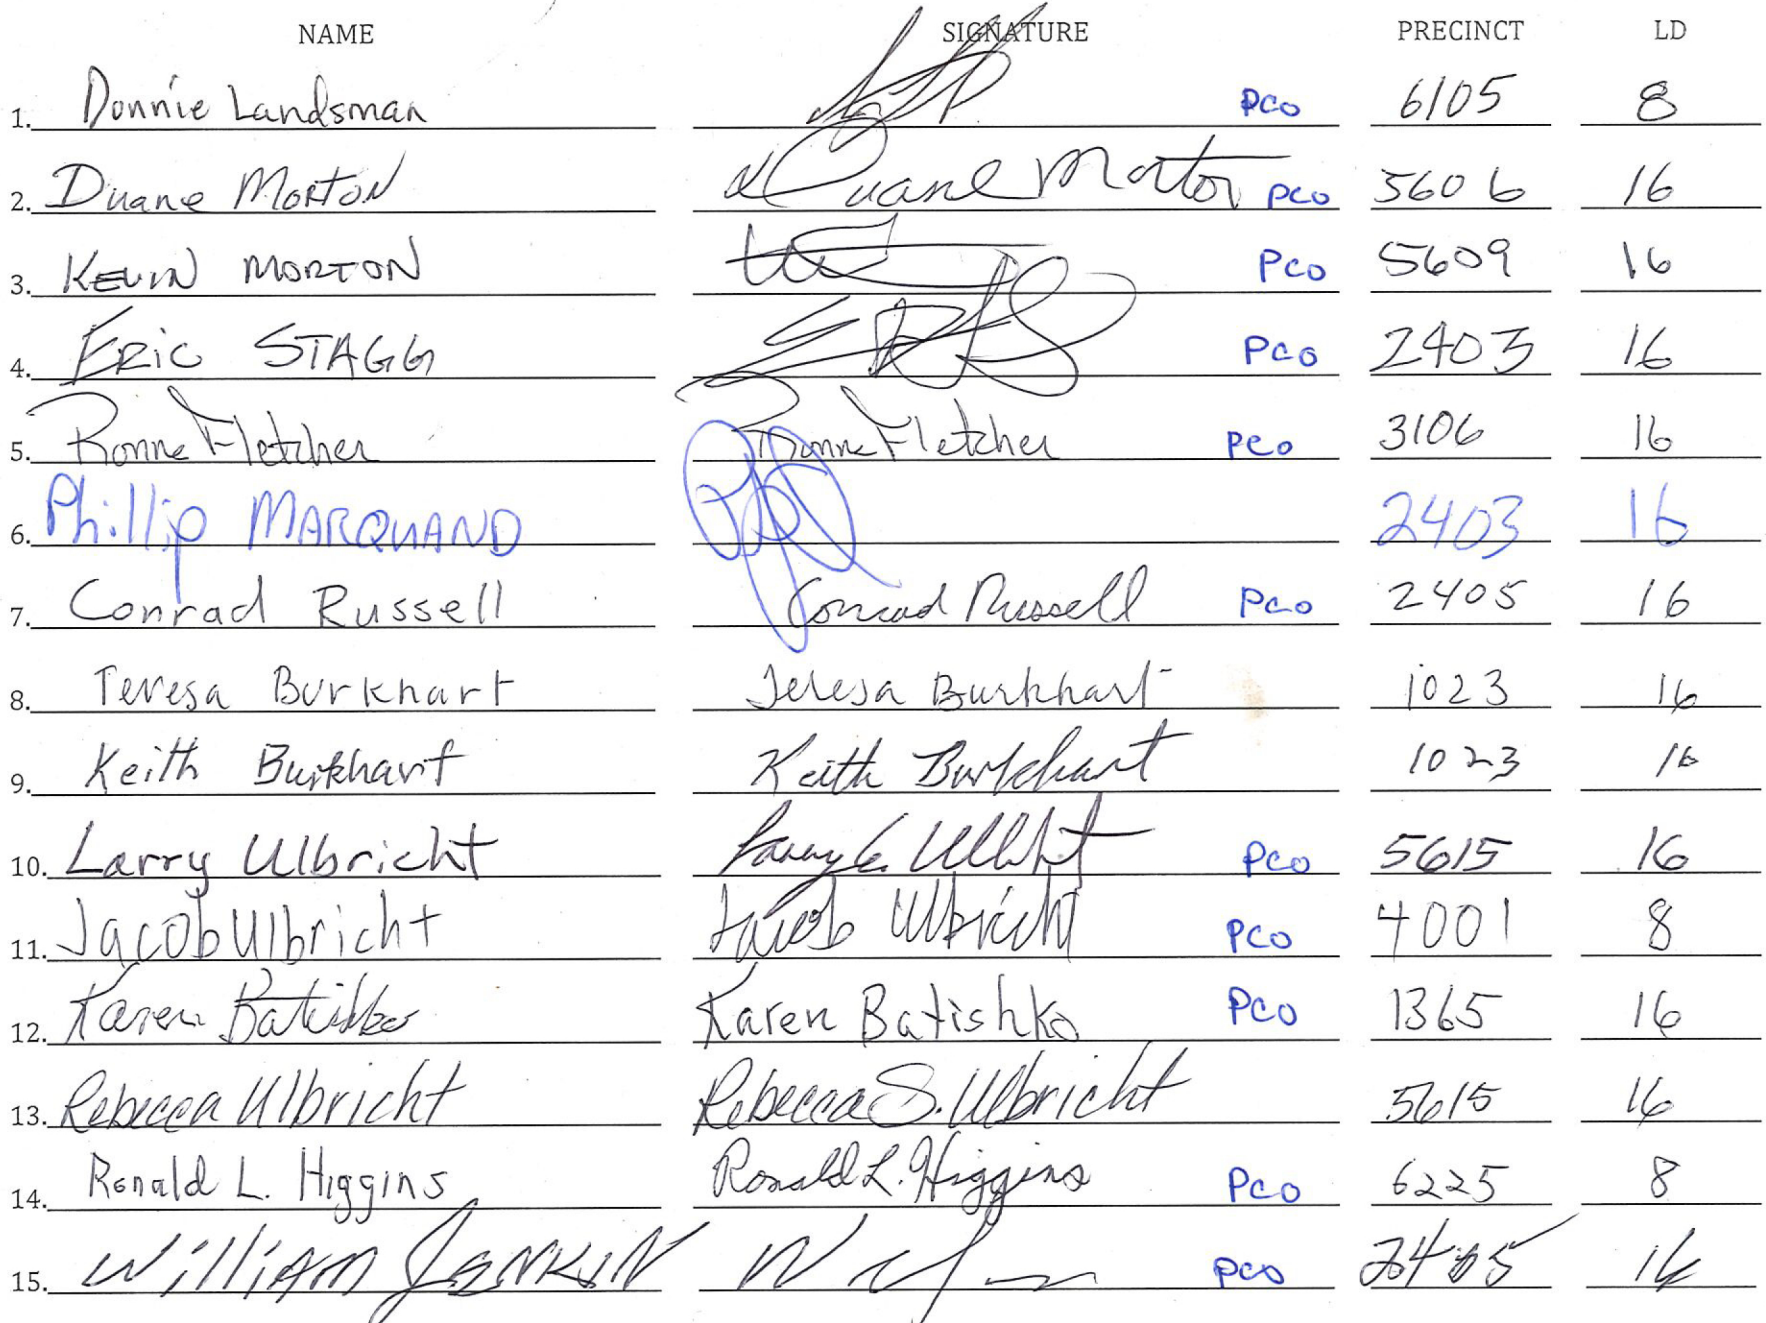 NAME SIGNATURE PRECINCT LD
1. Donnie Landsman PCO 6105 8
2. Duane Morton Duane Morton PCO 5606 16
3. KEVIN MORTON PCO 5609 16
4. ERIC STAGG PCO 2403 16
5. Ronne Fletcher Ronne Fletcher PCO 3106 16
6. Phillip MARQUAND 2403 16
7. Conrad Russell Conrad Russell PCO 2405 16
8. Teresa Burkhart Teresa Burkhart 1023 16
9. Keith Burkhart Keith Burkhart 1023 16
10. Larry Ulbricht Larry Ulbricht PCO 5615 16
11. Jacob Ulbricht Jacob Ulbricht PCO 4001 8
12. Karen Batishko Karen Batishko PCO 1365 16
13. Rebecca Ulbricht Rebecca S. Ulbricht 5615 16
14. Ronald L. Higgins Ronald L. Higgins PCO 6225 8
15. William JENKIN PCO 2405 16